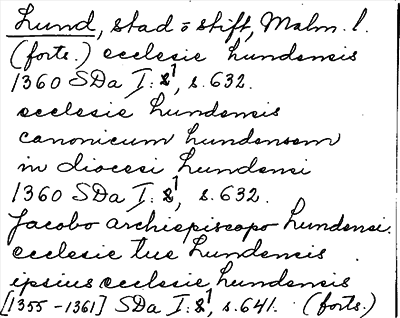 Lund, stad o stift, Malm. l.
(forts.) ecclesie Lundensis
1360 SDa I: 2¹, s. 632.
ecclesie Lundensis
canonicum Lundensem
in diocesi Lundensi
1360 SDa I: 2¹, s. 632.
Jacobo archiepiscopo Lundensi.
ecclesie tue Lundensis
ipsius ecclesie Lundensis
[1355-1361] SDa I: 2¹, s. 641. (forts.)